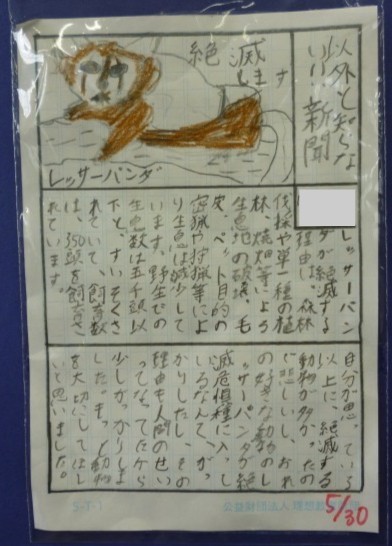 以外と知らな
い!! 新聞
絶滅
します
レッサーパンダ
レッサーパン
ダが絶滅する
理由は、森林
伐採や単一種の植
林、焼畑等による
生息地の破壊、毛
皮、ペット目的の
密猟や狩猟等によ
り生息は減少して
います。野生での
生息数は五千頭以
下と、すいそくさ
れていて、飼育数
は、350頭を飼育さ
れています。
自分が思っている
以上に、絶滅する
動物が多かったの
で悲しいし、おれ
の好きな動物のレ
ッサーパンダが絶
滅危惧種に入って
いるなんて、がっ
かりしたし、その
理由も人間のせい
ってなってたから
少しがっかりしま
した。もっと動物
を大切にしてほし
いと思いました。
5/30